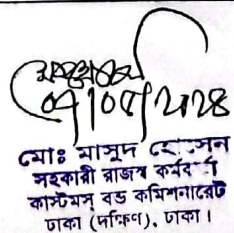 ০৭/০৫/২০২৪
মোঃ মাসুদ হোসেন
সহকারী রাজস্ব কর্মকর্তা
কাস্টমস্ বন্ড কমিশনারেট
ঢাকা (দক্ষিণ), ঢাকা।